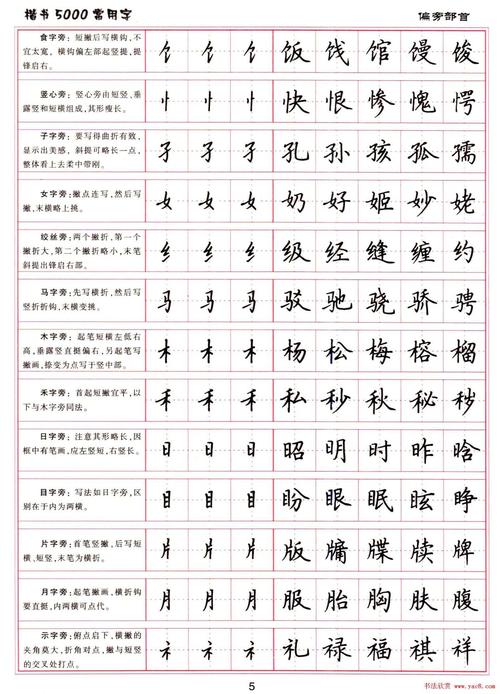 楷书5000常用字
偏旁部首
食字旁：短撇后写横钩，不
宜太宽，横钩偏左部起竖提，提
锋启右。
饣 饣 饣 饭 饯 馆 馒 馂
竖心旁：竖心旁由短竖、垂
露竖和短横组成，其形瘦长。
忄 忄 忄 快 恨 惨 愧 愕
子字旁：要写得曲折有致，
显示出美感，斜提可略长一点，
整体看上去柔中带刚。
孑 孑 孑 孔 孙 孩 孤 孺
女字旁：撇点连写，然后写
撇，末横略上挑。
女 女 女 奶 好 姬 妙 姥
绞丝旁：两个撇折，第一个
撇折大，第二个撇折略小，末笔
斜提出锋启右部。
纟 纟 纟 级 经 缝 缠 约
马字旁：先写横折，然后写
竖折折钩，末横变挑。
马 马 马 驳 驰 骁 骄 骋
木字旁：起笔短横左低右
高，垂露竖直挺偏右，另起笔写
撇画，捺变为点写于竖中部。
木 木 木 杨 松 梅 榕 榴
禾字旁：首起短撇宜平，以
下与木字旁同法。
禾 禾 禾 私 秒 秋 秘 秽
日字旁：注意其形略长，因
框中有笔画，应左竖短，右竖长。
日 日 日 昭 明 时 昨 晗
目字旁：写法如日字旁，区
别在于内为两横。
目 目 目 盼 眼 眠 眩 睁
片字旁：首笔竖撇，后写短
横、短竖，末笔为横折。
片 片 片 版 牖 牒 牍 牌
月字旁：起笔撇画，横折钩
要直挺，内两横可点代。
月 月 月 服 胎 胸 肤 腹
示字旁：俯点启下，横撇的
夹角莫大，折角对点，撇与短竖
的交叉处打点。
礻 礻 礻 礼 禄 福 祺 祥
5
书法欣赏
www.yac8.com